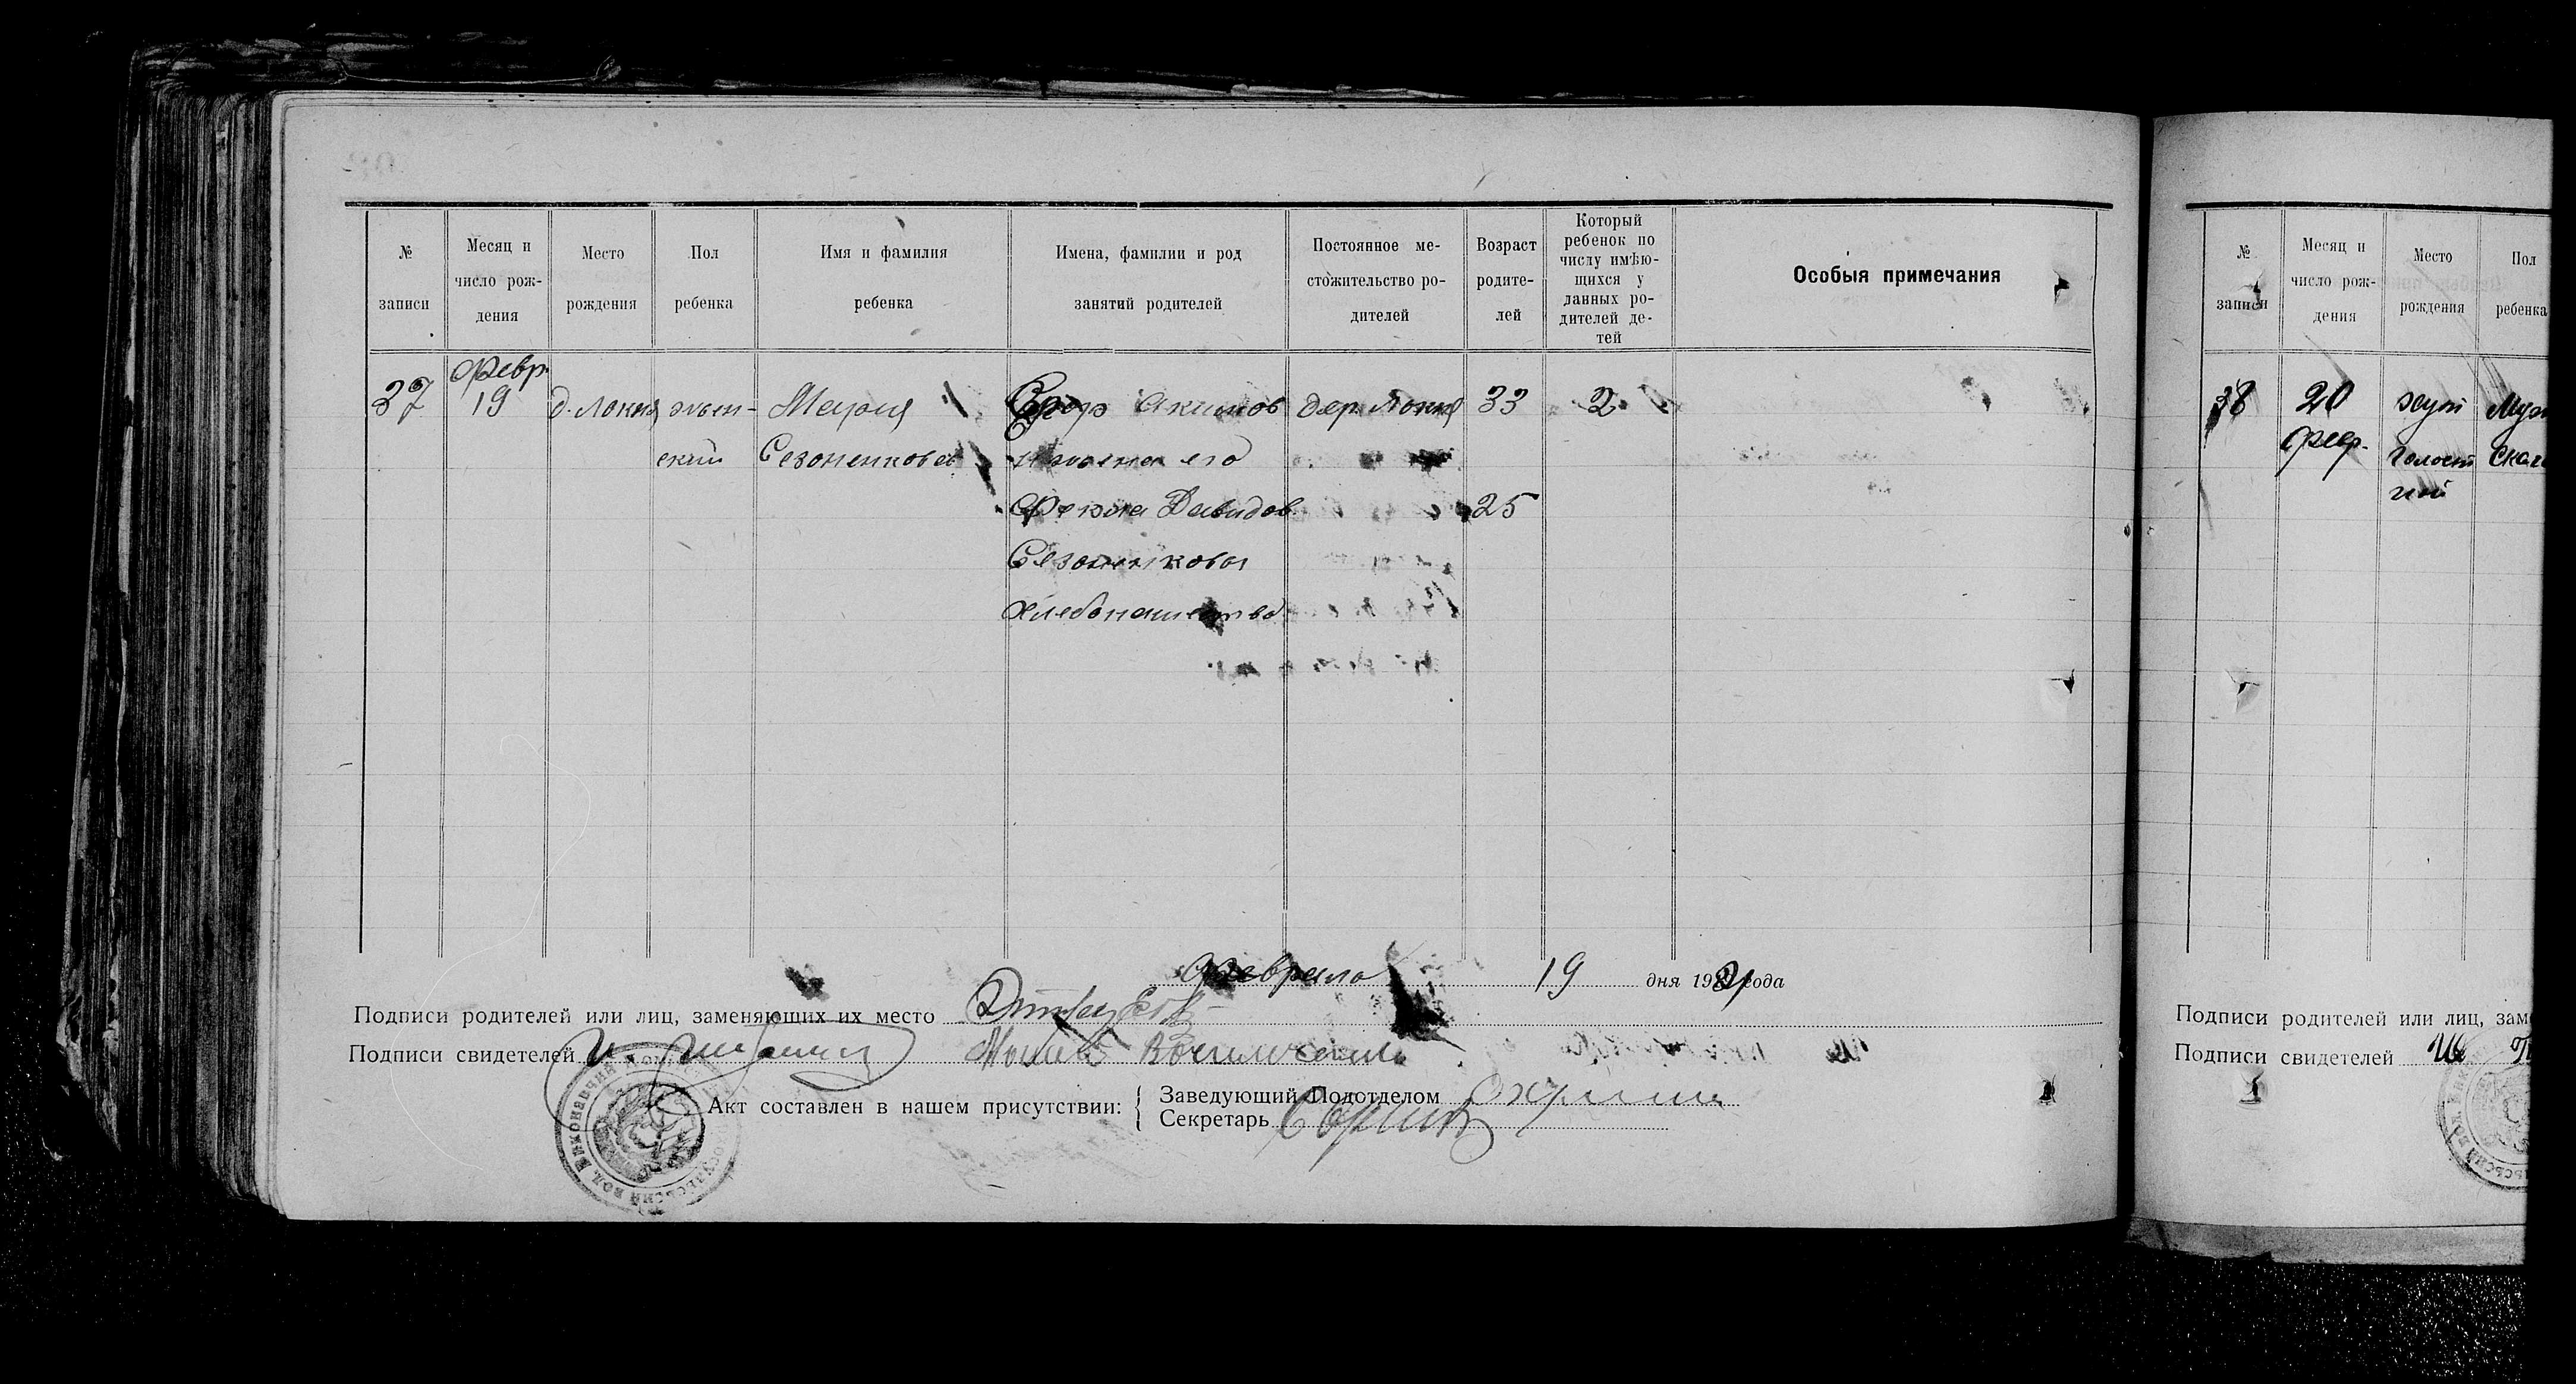 № записи
Месяц и число рож-дения
Место рождения
Пол ребенка
Имя и фамилия ребенка
Имена, фамилии и род занятий родителей
Постоянное ме-стожительство ро-дителей
Возраст родите-лей
Который ребенок по числу имѣю-щихся у данных ро-дителей де-тей
Особыя примечания
37
февр.
19
д. Локня
жен-
ский
Мария
Сезоненкова
Акимов
дер. Локня
33
2
и жена его
Фекла Давидов.
25
Сезоненковы
Хлебопашество
Февраля 19 дня 1921 года
Подписи родителей или лиц, заменяющих их место
Подписи свидетелей
Акт составлен в нашем присутствии:
Заведующий Подотделом
Секретарь
№ записи
Месяц и число рож-дения
Место рождения
Пол ребенка
38
20
февр.
хут.
Муж
ской
Подписи родителей или лиц, зам
Подписи свидетелей